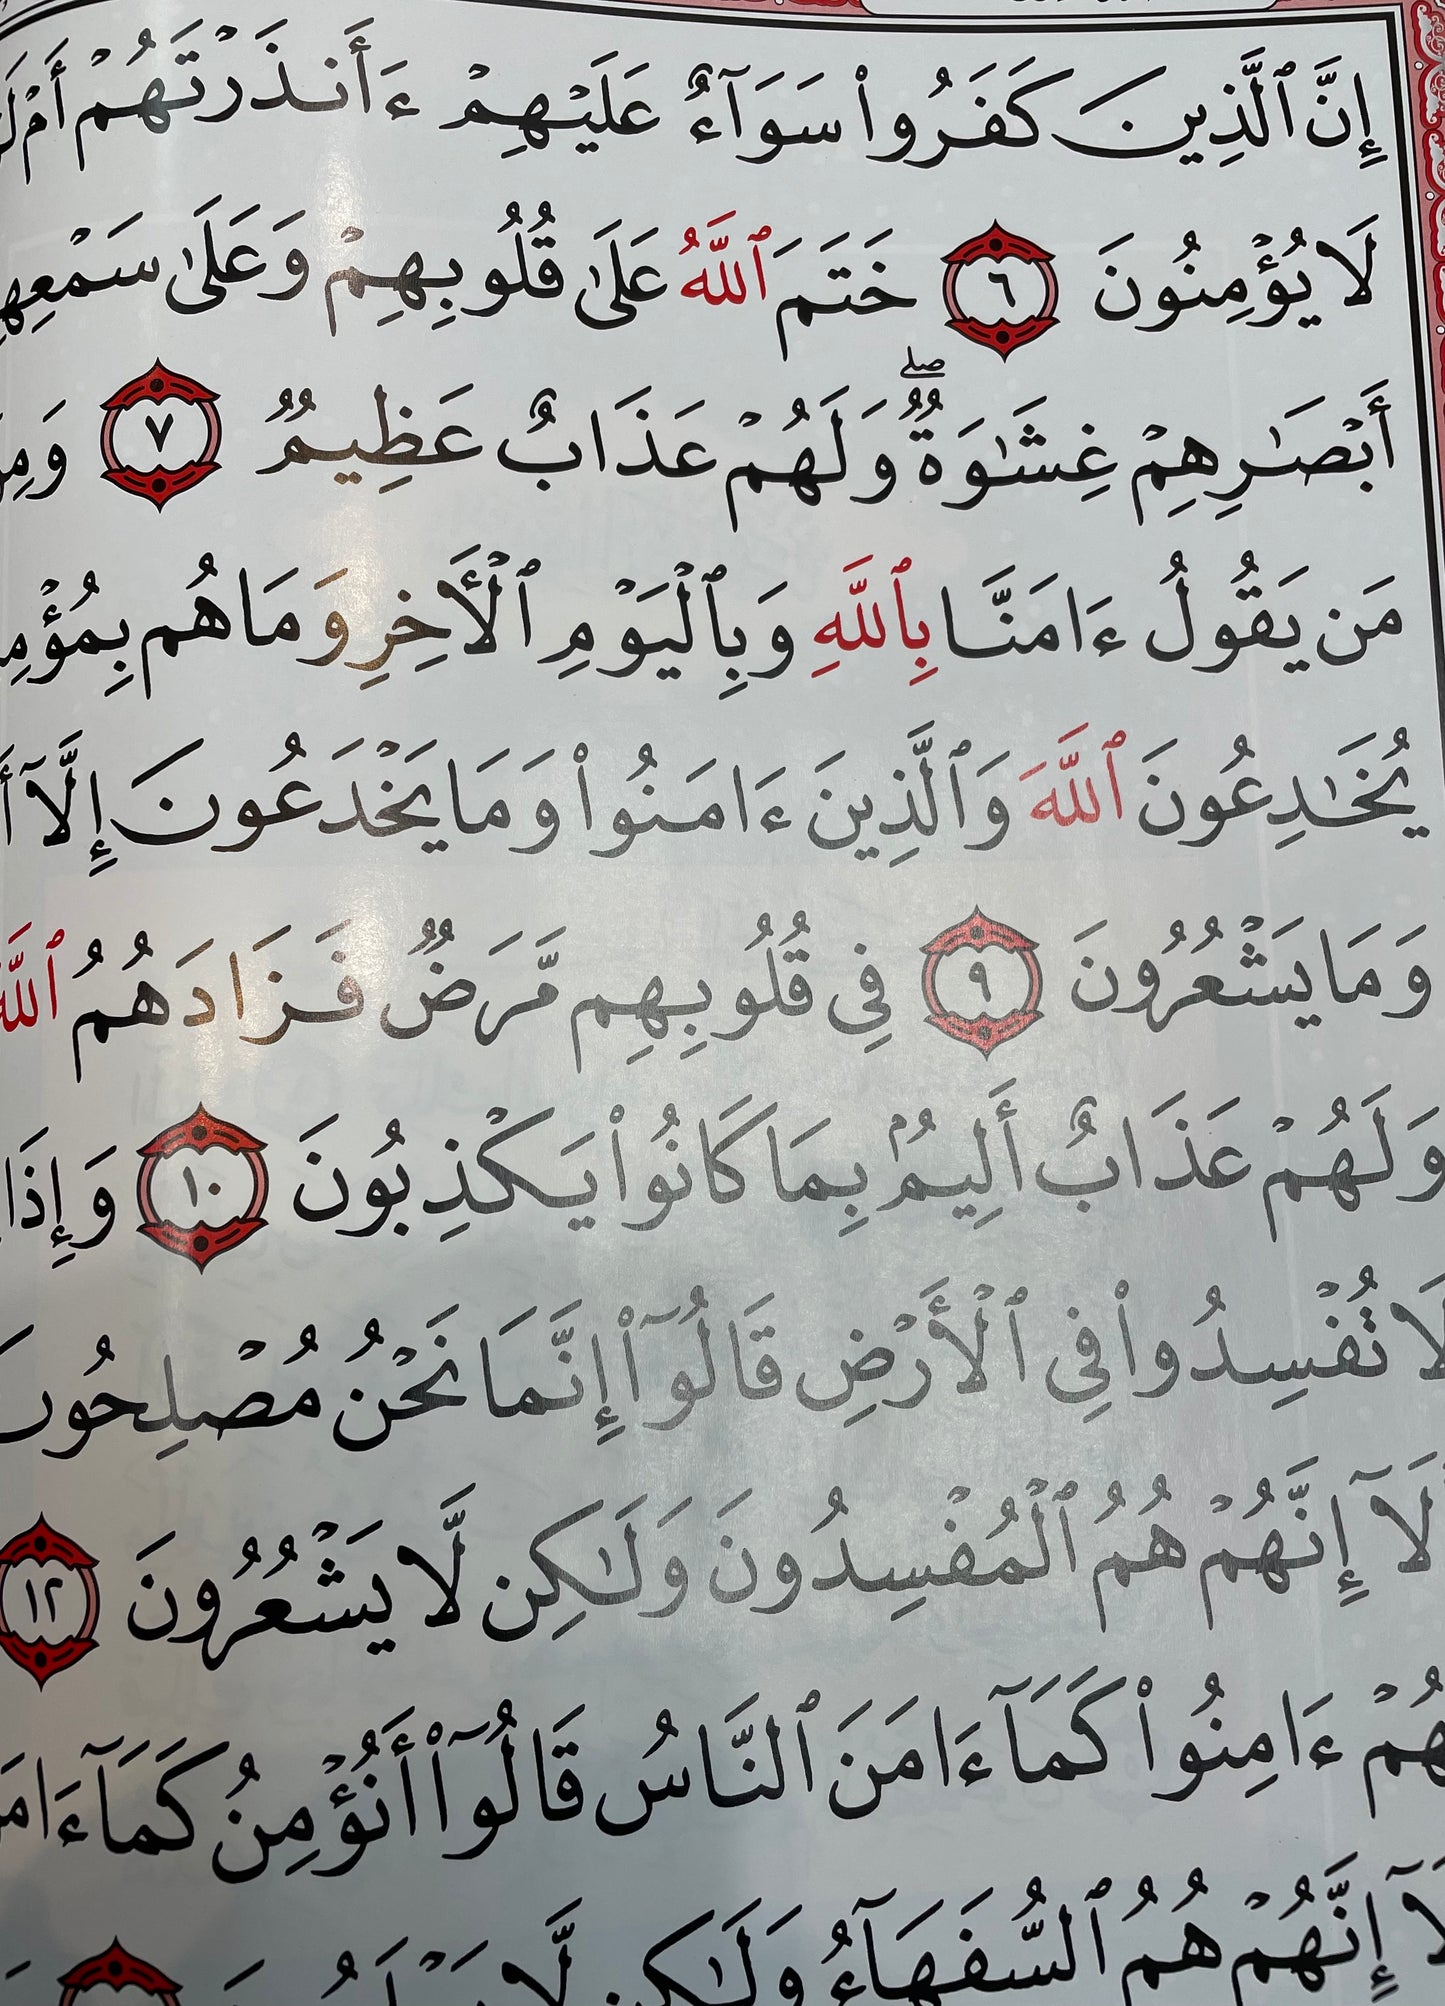 إِنَّ ٱلَّذِينَ كَفَرُوا۟ سَوَآءٌ عَلَيْهِمْ ءَأَنذَرْتَهُمْ أَمْ
لَا يُؤْمِنُونَ ٦ خَتَمَ ٱللَّهُ عَلَىٰ قُلُوبِهِمْ وَعَلَىٰ سَمْعِهِ
أَبْصَـٰرِهِمْ غِشَـٰوَةٌ ۖ وَلَهُمْ عَذَابٌ عَظِيمٌ ٧ وَمِ
مَن يَقُولُ ءَامَنَّا بِٱللَّهِ وَبِٱلْيَوْمِ ٱلْـَٔاخِرِ وَمَا هُم بِمُؤْمِ
يُخَـٰدِعُونَ ٱللَّهَ وَٱلَّذِينَ ءَامَنُوا۟ وَمَا يَخْدَعُونَ إِلَّآ أَ
وَمَا يَشْعُرُونَ ٩ فِى قُلُوبِهِم مَّرَضٌ فَزَادَهُمُ ٱللَّ
وَلَهُمْ عَذَابٌ أَلِيمٌۢ بِمَا كَانُوا۟ يَكْذِبُونَ ١٠ وَإِذَا
لَا تُفْسِدُوا۟ فِى ٱلْأَرْضِ قَالُوٓا۟ إِنَّمَا نَحْنُ مُصْلِحُونَ
لَآ إِنَّهُمْ هُمُ ٱلْمُفْسِدُونَ وَلَـٰكِن لَّا يَشْعُرُونَ ١٢
هُمْ ءَامِنُوا۟ كَمَآ ءَامَنَ ٱلنَّاسُ قَالُوٓا۟ أَنُؤْمِنُ كَمَآ ءَامَ
لَآ إِنَّهُمْ هُمُ ٱلسُّفَهَآءُ وَلَـٰكِن لَّا